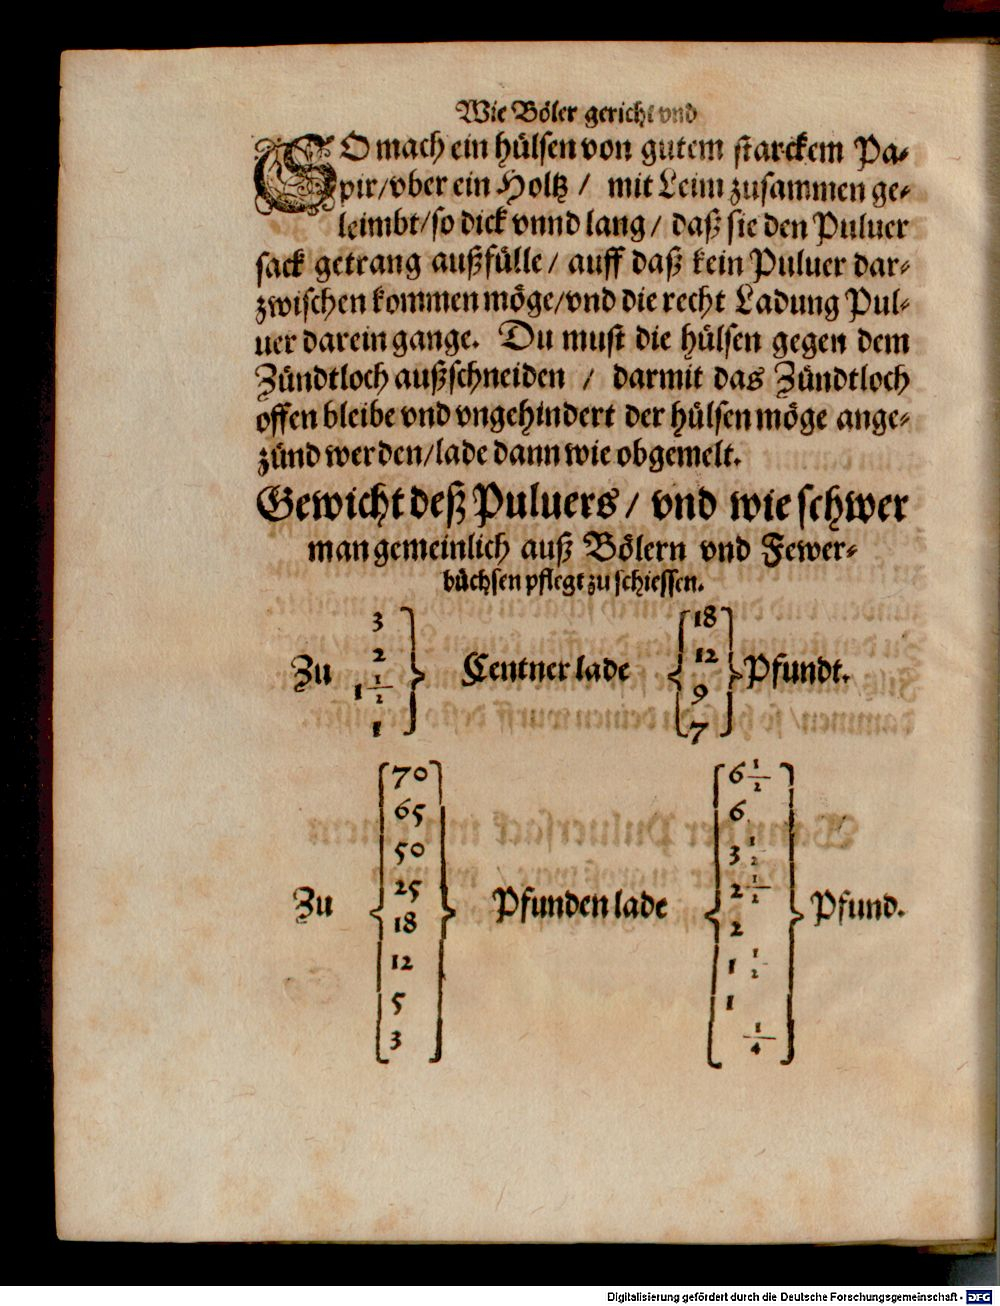 Wie Böler gericht vnd
SO mach ein hülsen von gutem starckem Pa-
pir/vber ein Holtz / mit Leim zusammen ge-
leimbt/so dick vnnd lang / daß sie den Puluer
sack getrang außfülle / auff daß kein Puluer dar-
zwischen kommen möge/vnd die recht Ladung Pul-
uer darein gange. Du must die hülsen gegen dem
Zündtloch außschneiden / darmit das Zündtloch
offen bleibe vnd vngehindert der hülsen möge ange-
zünd werden/lade dann wie obgemelt.
Gewicht deß Puluers / vnd wie schwer
man gemeinlich auß Bölern vnd Fewer-
büchsen pflegt zu schiessen.
3 18
2 12
Zu Centner lade Pfundt.
1 1/2 9
1 7
70 6 1/2
65 6
50 3 1/2
25 2 1/2
Zu Pfunden lade Pfund.
18 2
12 1 1/2
5 1
3 1/4
Digitalisierung gefördert durch die Deutsche Forschungsgemeinschaft - DFG